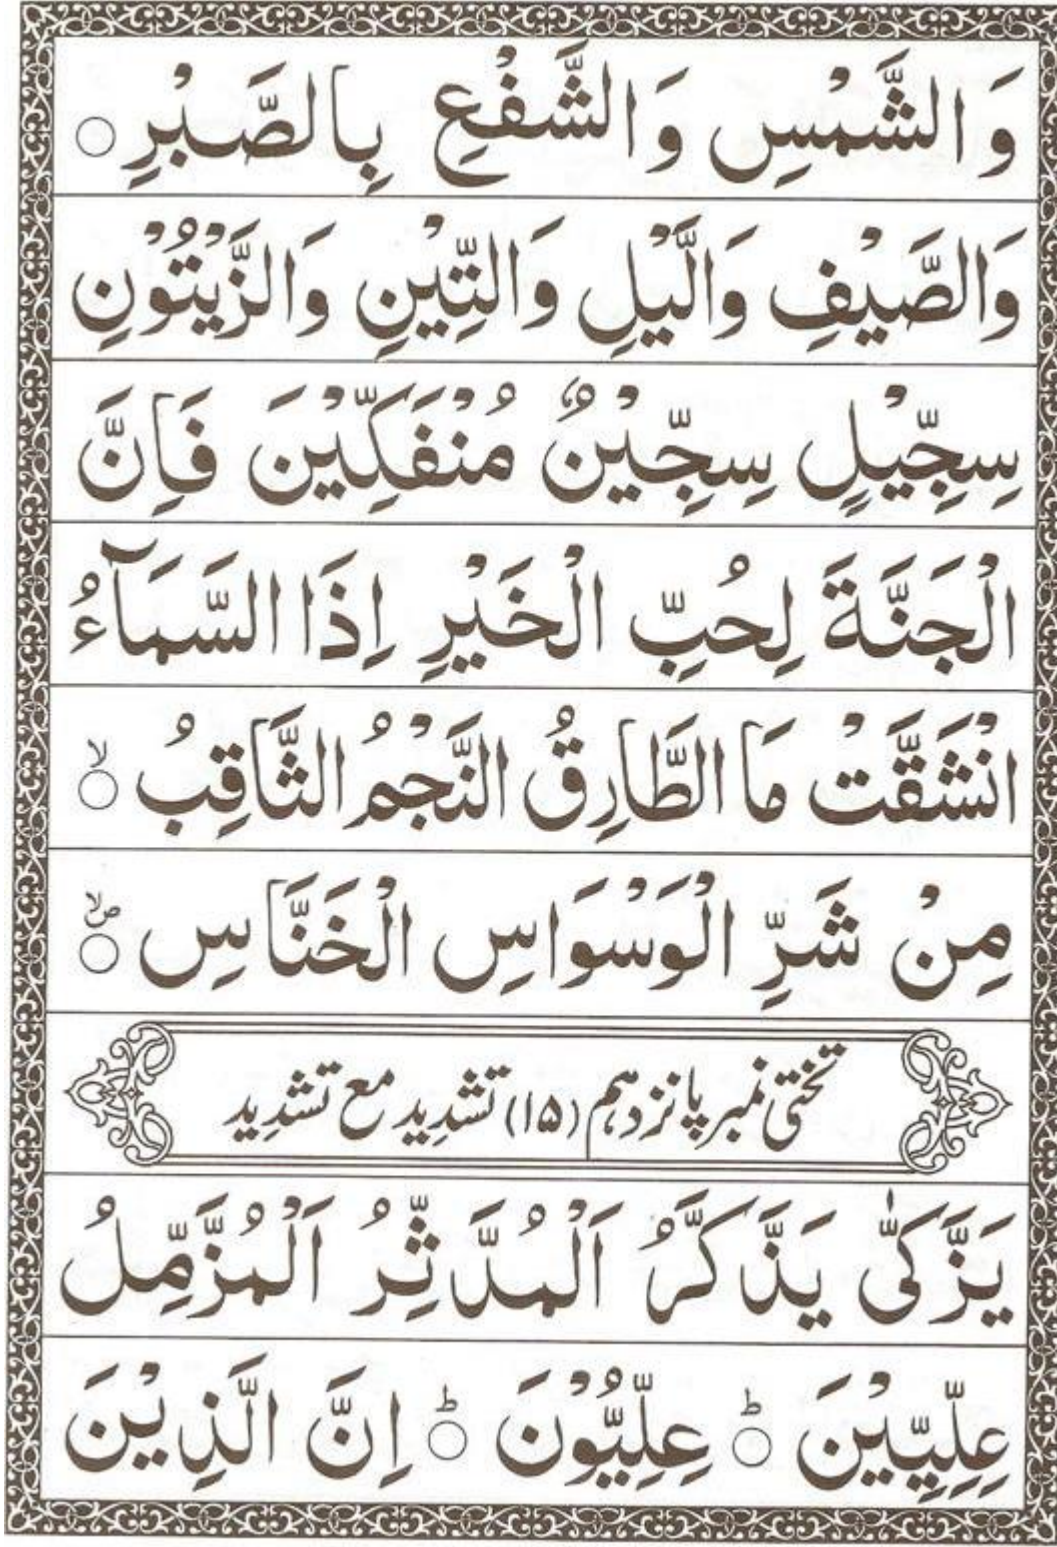 وَالشَّمْسِ وَالشَّفْعِ بِالصَّبْرِ ○
وَالصَّيْفِ وَالَّيْلِ وَالتِّيْنِ وَالزَّيْتُوْنِ
سِجِّيْلٍ سِجِّيْنٌ مُنْفَكِّيْنَ فَاِنَّ
الْجَنَّةَ لِحُبِّ الْخَيْرِ اِذَا السَّمَآءُ
انْشَقَّتْ مَا الطَّارِقُ النَّجْمُ الثَّاقِبُ ○ لا
مِنْ شَرِّ الْوَسْوَاسِ الْخَنَّاسِ ○ صلا
تختی نمبر پانزدہم (۱۵) تشدِید مع تشدِید
يَزَّكّٰى يَذَّكَّرُ اَلْمُدَّثِّرُ اَلْمُزَّمِّلُ
عِلِّيِّيْنَ ○ ط عِلِّيُّوْنَ ○ ط اِنَّ الَّذِيْنَ